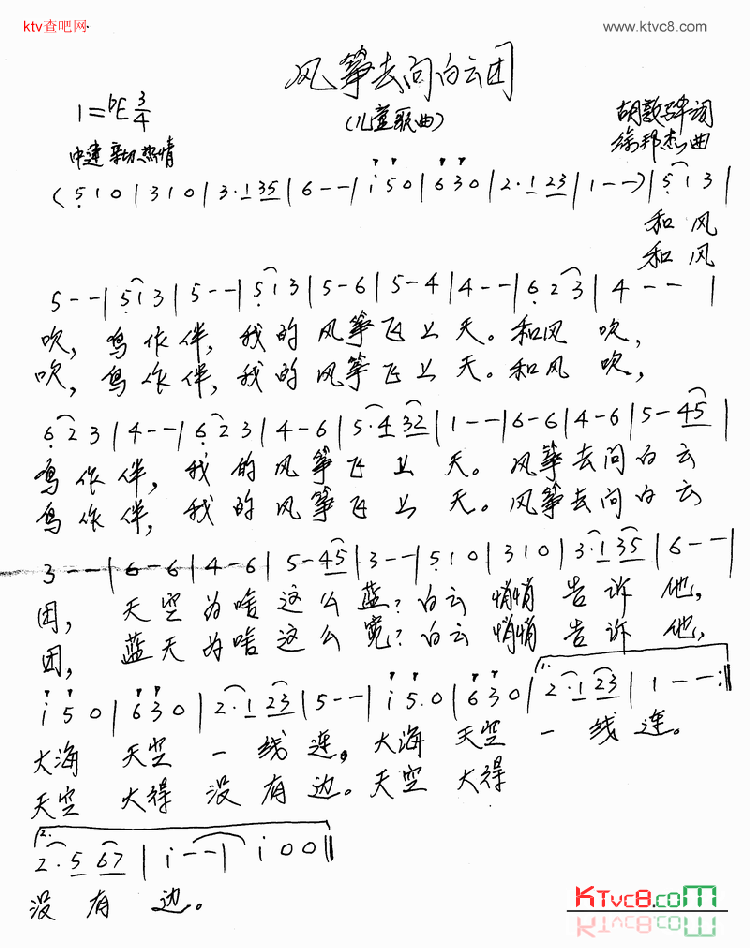 ktv查吧网
www.ktvc8.com
风筝去问白云团
1=bE 3/4
(儿童歌曲)
胡敦骅词
徐邦杰曲
中速 亲切、热情
(5 1 0 | 3 1 0 | 3·1 3 5 | 6 - - | i 5 0 | 6 3 0 | 2·1 2 3 | 1 - - ) | 5 1 3 |
和风
和风
5 - - | 5 1 3 | 5 - - | 5 1 3 | 5 - 6 | 5 - 4 | 4 - - | 6 2 3 | 4 - - |
吹,鸟作伴,我的风筝飞上天。和风吹,
吹,鸟作伴,我的风筝飞上天。和风吹,
6 2 3 | 4 - - | 6 2 3 | 4 - 6 | 5·4 3 2 | 1 - - | 6 - 6 | 4 - 6 | 5 - 4 5 |
鸟作伴,我的风筝飞上天。风筝去问白云
鸟作伴,我的风筝飞上天。风筝去问白云
3 - - | 6 - 6 | 4 - 6 | 5 - 4 5 | 3 - - | 5 1 0 | 3 1 0 | 3·1 3 5 | 6 - - |
团,天空为啥这么蓝?白云悄悄告诉他,
团,蓝天为啥这么宽?白云悄悄告诉他,
i 5 0 | 6 3 0 | 2·1 2 3 | 5 - - | i 5 0 | 6 3 0 | 1. 2·1 2 3 | 1 - - :||
大海天空一线连,大海天空一线连。
天空大得没有边。天空大得
2. 2·5 6 7 | i - - | i 0 0 ||
没有边。
KTvc8.com